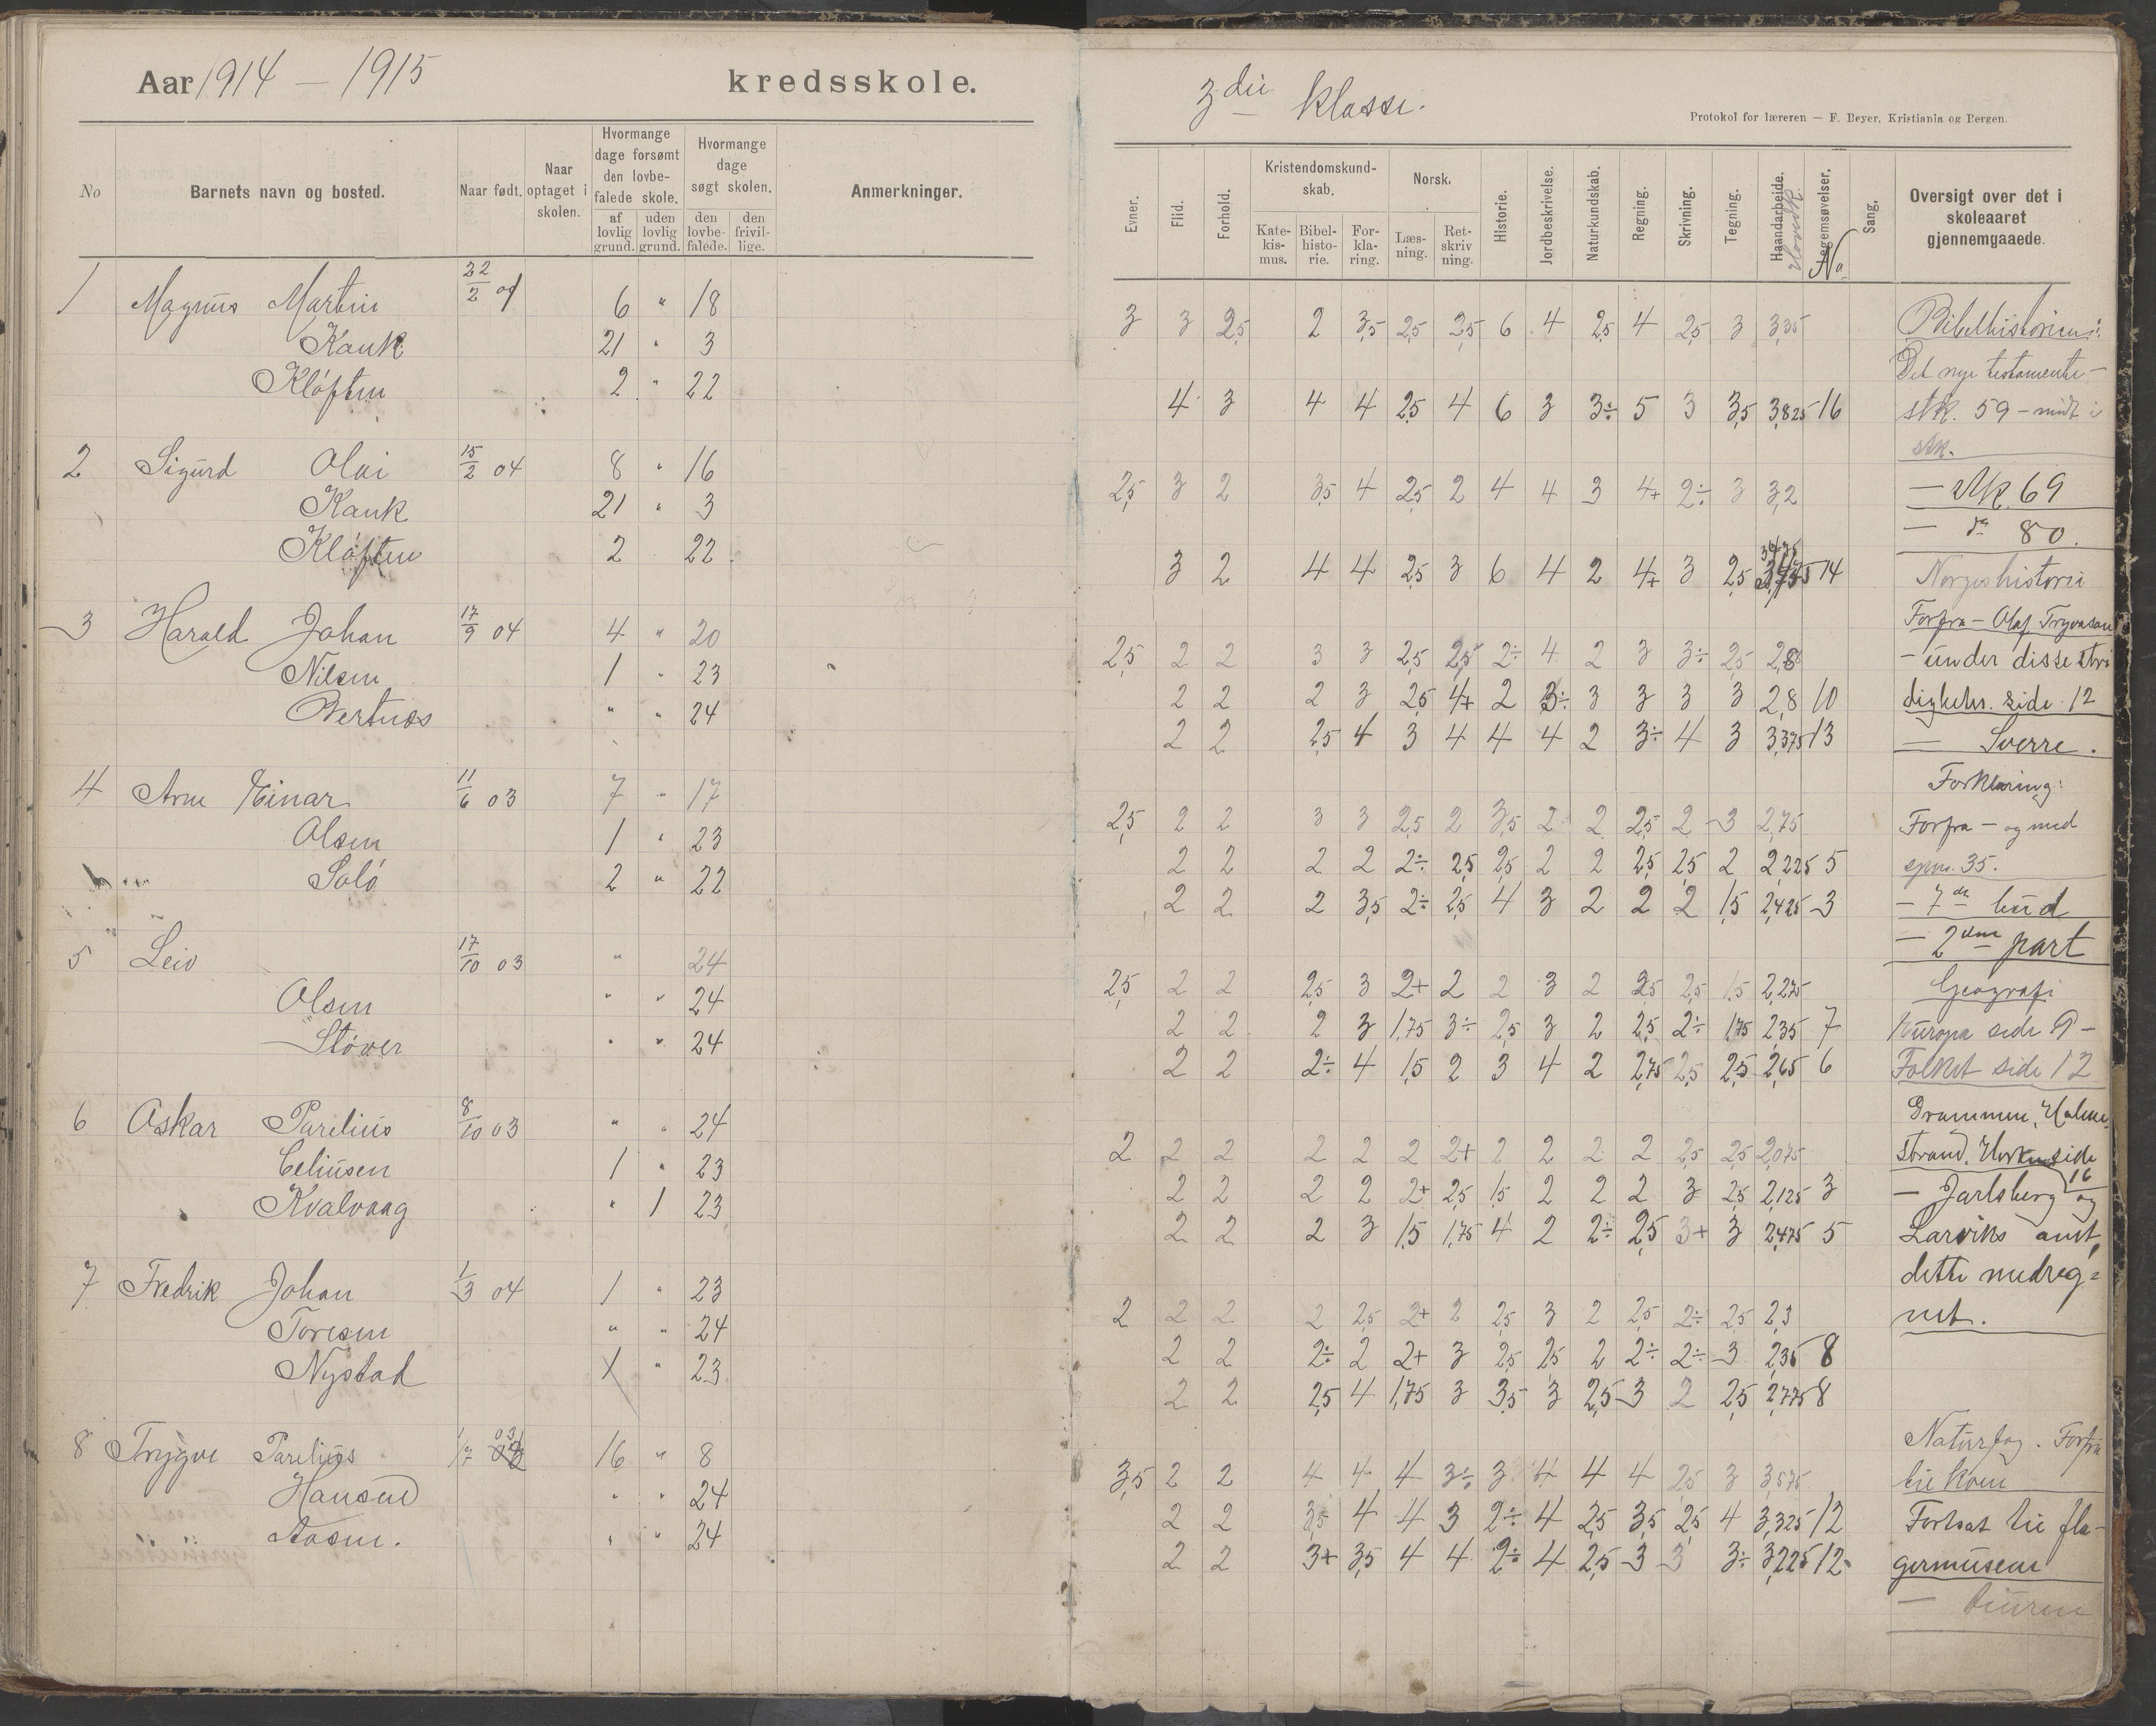 Aar 1914 – 1915 kredsskole.
No
Barnets navn og bosted.
Naar født.
Naar optaget i skolen.
Hvormange dage forsømt den lovbefalede skole.
af lovlig grund.
uden lovlig grund.
Hvormange dage søgt skolen.
den lovbefalede.
den frivillige.
Anmerkninger.
1 Magnus Martin 22/2 04 6 " 18
Kauk 21 " 3
Kløften 2 " 22
2 Sigurd Olai 15/2 04 8 " 16
Kauk 21 " 3
Kløften 2 22
3 Harald Johan 17/9 04 4 " 20
Nilsen 1 " 23
Bertnes " " 24
4 Arne Einar 11/6 03 7 " 17
Olsen 1 " 23
Solø 2 " 22
5 Leiv 17/10 03 " 24
Olsen " " 24
Støver " " 24
6 Askar Parelius 8/10 03 " " 24
Celiusen 1 " 23
Kvalvaag " 1 23
7 Fredrik Johan 1/3 04 1 " 23
Toresen " " 24
Nystad 1 " 23
8 Trygve Parelius 1/7 03 16 " 8
Hansen " " 24
Aasen. " " 24
3die klasse.
Protokol for læreren — F. Beyer, Kristiania og Bergen.
Evner.
Flid.
Forhold.
Kristendomskundskab.
Katekismus.
Bibelhistorie.
Forklaring.
Norsk.
Læsning.
Retskrivning.
Historie.
Jordbeskrivelse.
Naturkundskab.
Regning.
Skrivning.
Tegning.
Haandarbeide.
Hovedk.
Legemsøvelser.
No
Sang.
Oversigt over det i skoleaaret gjennemgaaede.
3 3 2,5 2 3,5 2,5 2,5 6 4 2,5 4 2,5 3 3,35
4 3 4 4 2,5 4 6 3 3÷ 5 3 3,5 3,825 16
2,5 3 2 3,5 4 2,5 2 4 4 3 4+ 2÷ 3 3,2
3 2 4 4 2,5 3 6 4 2 4+ 3 2,5 3,475 14
2,5 2 2 3 3 2,5 2,5 2÷ 4 2 3 3÷ 2,5 2,8
2 2 2 3 2,5 4+ 2 3÷ 3 3 3 3 2,8 10
2 2 2,5 4 3 4 4 4 2 3÷ 4 3 3,375 13
2,5 2 2 3 3 2,5 2 3,5 2 2 2,5 2 3 2,75
2 2 2 2 2÷ 2,5 2,5 2 2 2,5 2,5 2 2,225 5
2 2 2 3,5 2÷ 2,5 4 3 2 2 2 1,5 2,425 3
2,5 2 2 2,5 3 2+ 2 2 3 2 2,5 2,5 1,5 2,275
2 2 2 3 1,75 3÷ 2,5 3 2 2,5 2÷ 1,75 2,35 7
2 2 2÷ 4 1,5 2 3 4 2 2,75 2,5 2,5 2,65 6
2 2 2 2 2 2 2+ 2 2 2 2 2,5 2,5 2,075
2 2 2 2 2+ 2,5 1,5 2 2 2 3 2,5 2,125 3
2 2 2 3 1,5 1,75 4 2 2÷ 2,5 3+ 3 2,475 5
2 2 2 2 2,5 2+ 2 2,5 3 2 2,5 2÷ 2,5 2,3
2 2 2÷ 2 2+ 3 2,5 2,5 2 2÷ 2÷ 3 2,35 8
2 2 2,5 4 1,75 3 3,5 3 2,5 3 2 2,5 2,775 8
3,5 2 2 4 4 4 3÷ 3 4 4 4 2,5 3 3,575
2 2 3,5 4 4 3 2÷ 4 2,5 3,5 2,5 4 3,325 12
2 2 3+ 3,5 4 4 2÷ 4 2,5 3 3 3÷ 3,225 12
Bibelhistorien:
Det nye testamente –
stk. 59 – midt i
stk.
— stk. 69
— do 80.
Norgeshistorie
Forfra – Olaf Trygvasøn
– under disse stri
digheter. side 12
— Sverre.
Forklaring:
Forfra – og med
spm. 35.
– 7de bud
– 2den part
Geografi
Europa side 9 –
Folket side 12
Drammen, Holme-
strand, Horten side 16
– Jarlsberg og
Larviks amt,
dette medreg=
net.
Naturfag. Forfra
til korn
Fortsat til fla-
germusene
—